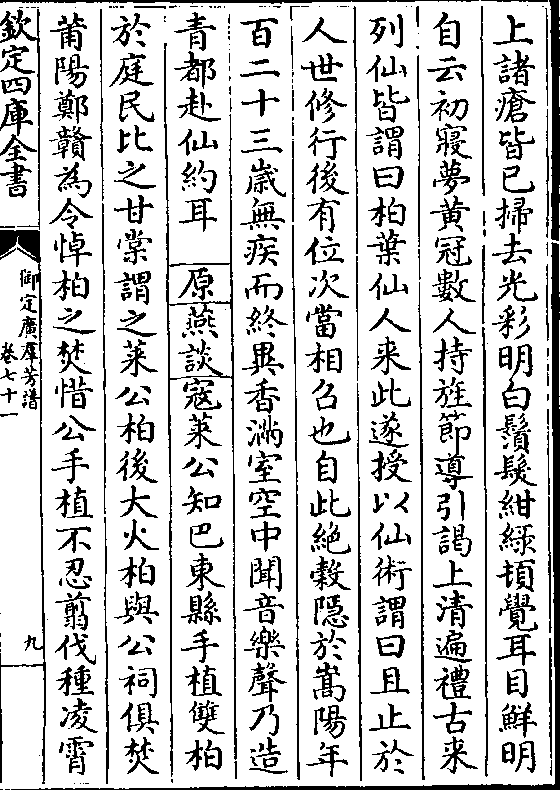 上諸瘡皆已掃去光彩明白鬚髮紺緑頓覺耳目鮮明
自云初寢夢黄冠數人持旌節導引謁上清遍禮古来
列仙皆謂曰柏葉仙人来此遂授以仙術謂曰且止於
人世修行後有位次當相召也自此絶穀隱於嵩陽年
百二十三歳無疾而終異香滿室空中聞音樂聲乃造
青都赴仙約耳 原燕談寇莱公知巴東縣手植雙柏
於庭民比之甘棠謂之莱公柏後大火柏與公祠俱焚
莆陽鄭贛為令悼柏之焚惜公手植不忍翦伐種凌霄
欽定四庫全書
御定廣羣芳譜
卷七十一
九